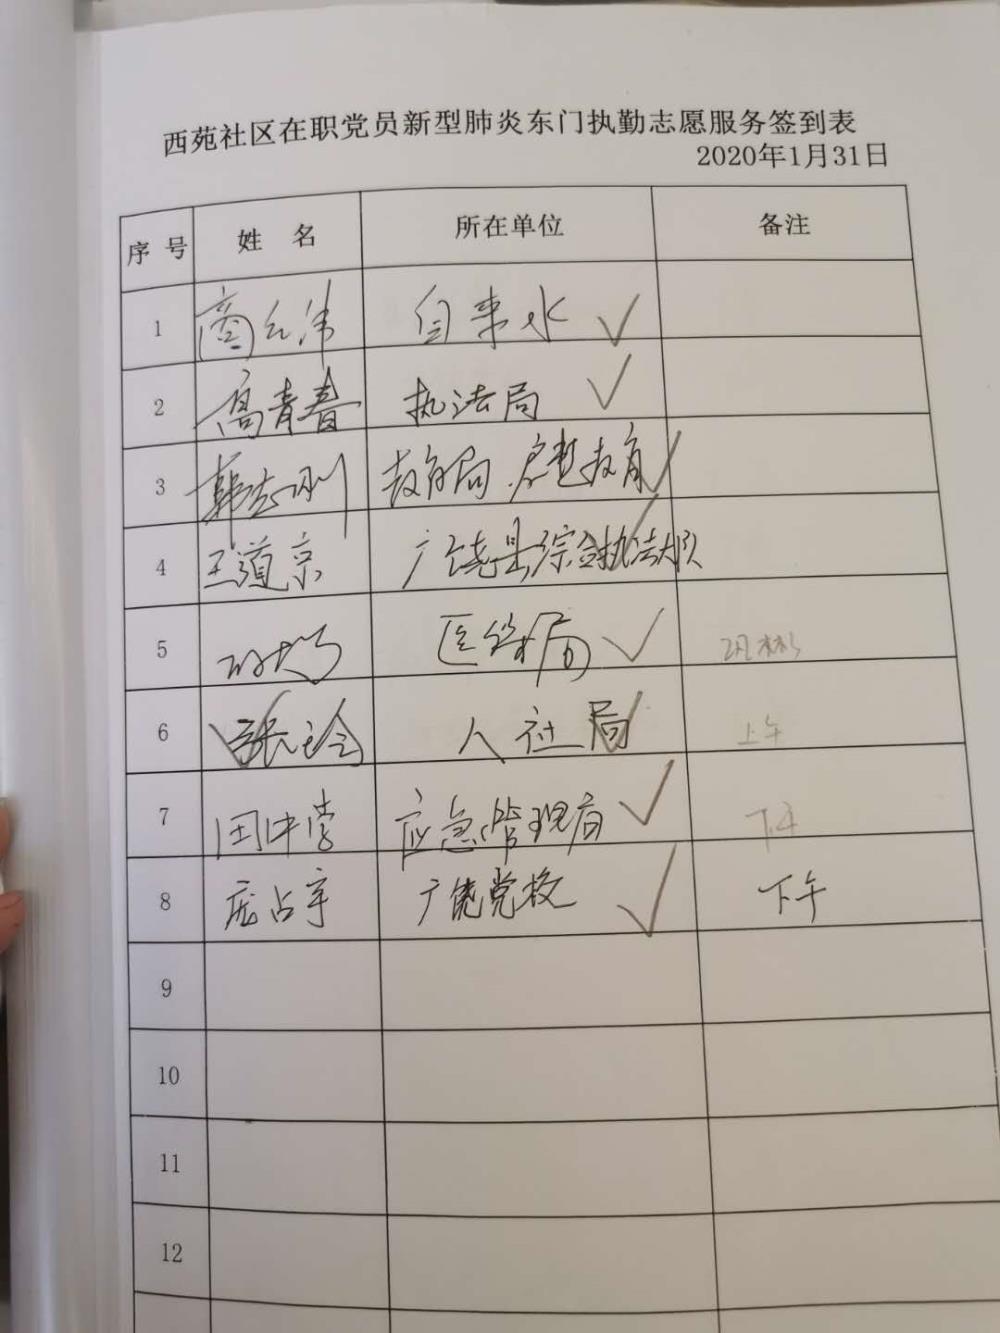 西苑社区在职党员新型肺炎东门执勤志愿服务签到表
2020年1月31日
序号 姓名 所在单位 备注
1 自来水 ✓
2 高青春 执法局 ✓
3 韩志刚 教育局 教育 ✓
4 王道京 广饶县综合执法大队 ✓
5 医保局 ✓ 巩彬彬
6 张玲 人社局 ✓ 上午
7 田中学 应急管理局 ✓ 下午
8 庞占宇 广饶党校 ✓ 下午
9
10
11
12